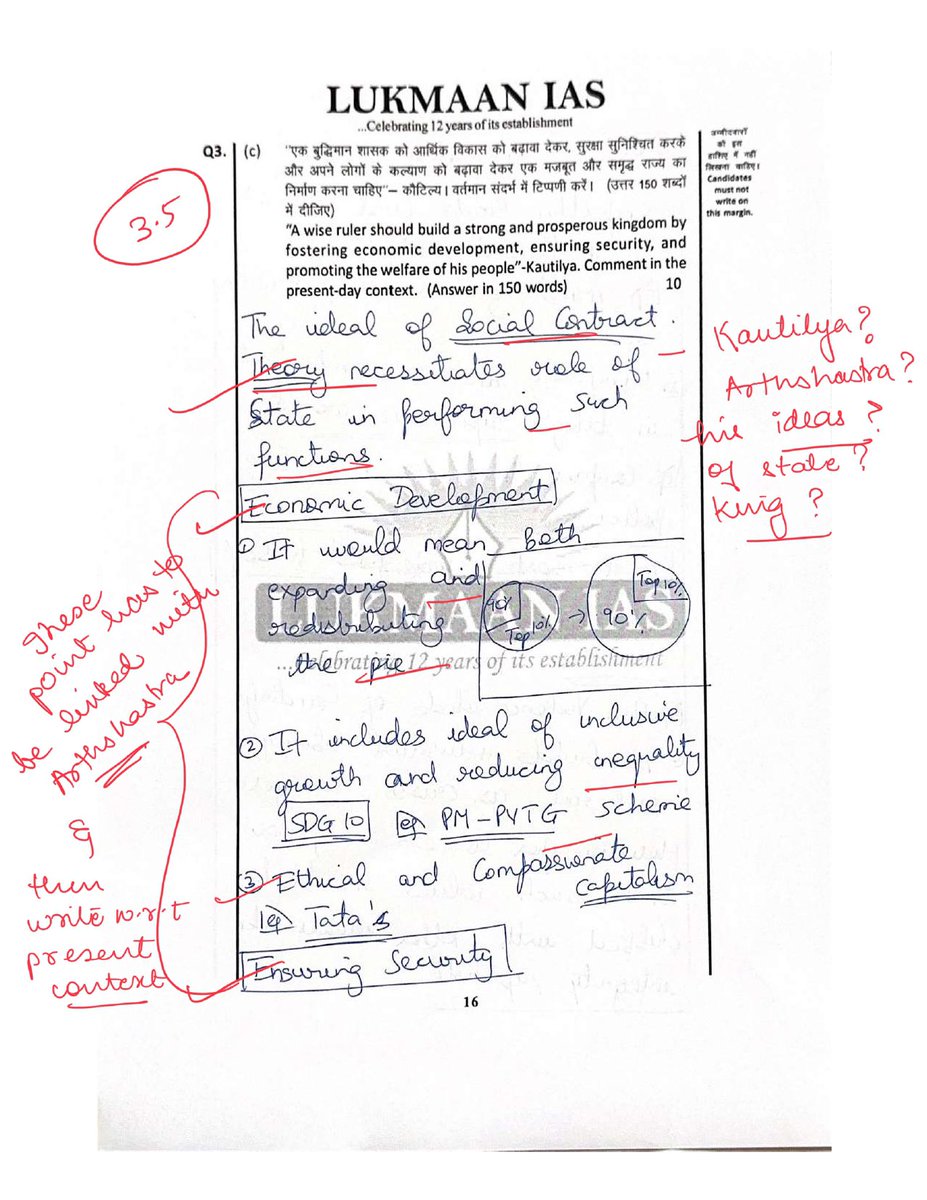 LUKMAAN IAS
...Celebrating 12 years of its establishment
उम्मीदवारों
को इस
हाशिए में नहीं
लिखना चाहिए।
Candidates
must not
write on
this margin.
Q3. (c) "एक बुद्धिमान शासक को आर्थिक विकास को बढ़ावा देकर, सुरक्षा सुनिश्चित करके
और अपने लोगों के कल्याण को बढ़ावा देकर एक मजबूत और समृद्ध राज्य का
निर्माण करना चाहिए"– कौटिल्य। वर्तमान संदर्भ में टिप्पणी करें। (उत्तर 150 शब्दों
में दीजिए)
3.5
"A wise ruler should build a strong and prosperous kingdom by
fostering economic development, ensuring security, and
promoting the welfare of his people"-Kautilya. Comment in the
present-day context. (Answer in 150 words) 10
The ideal of Social Contract
Theory necessitates role of
State in performing such
functions.
Kautilya?
Arthshastra?
his ideas?
of state?
King?
Economic Development
① It would mean both
expanding and
redistributing
the pie
90%
Top 10%
→
90%
Top 10%
LUKMAAN IAS
...Celebrating 12 years of its establishment
These
point has to
be linked with
Arthshastra
&
then
write w.r.t
present
context
② It includes ideal of inclusive
growth and reducing inequality
SDG 10 eg PM-PVTG scheme
③ Ethical and Compassionate
capitalism
eg Tata's
Ensuring Security
16